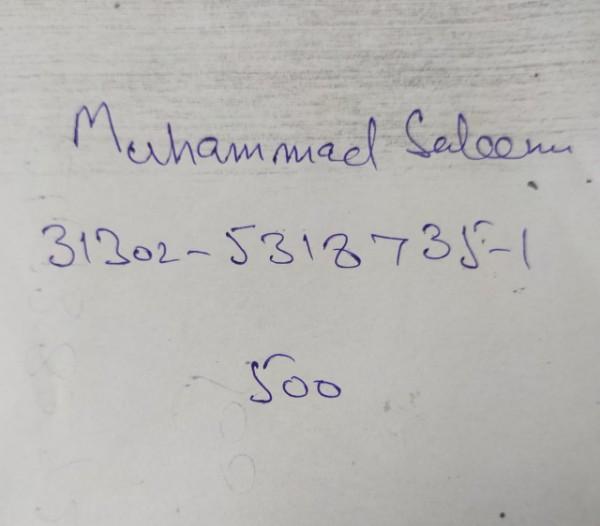 Muhammad Saleem
31302-5318735-1
500